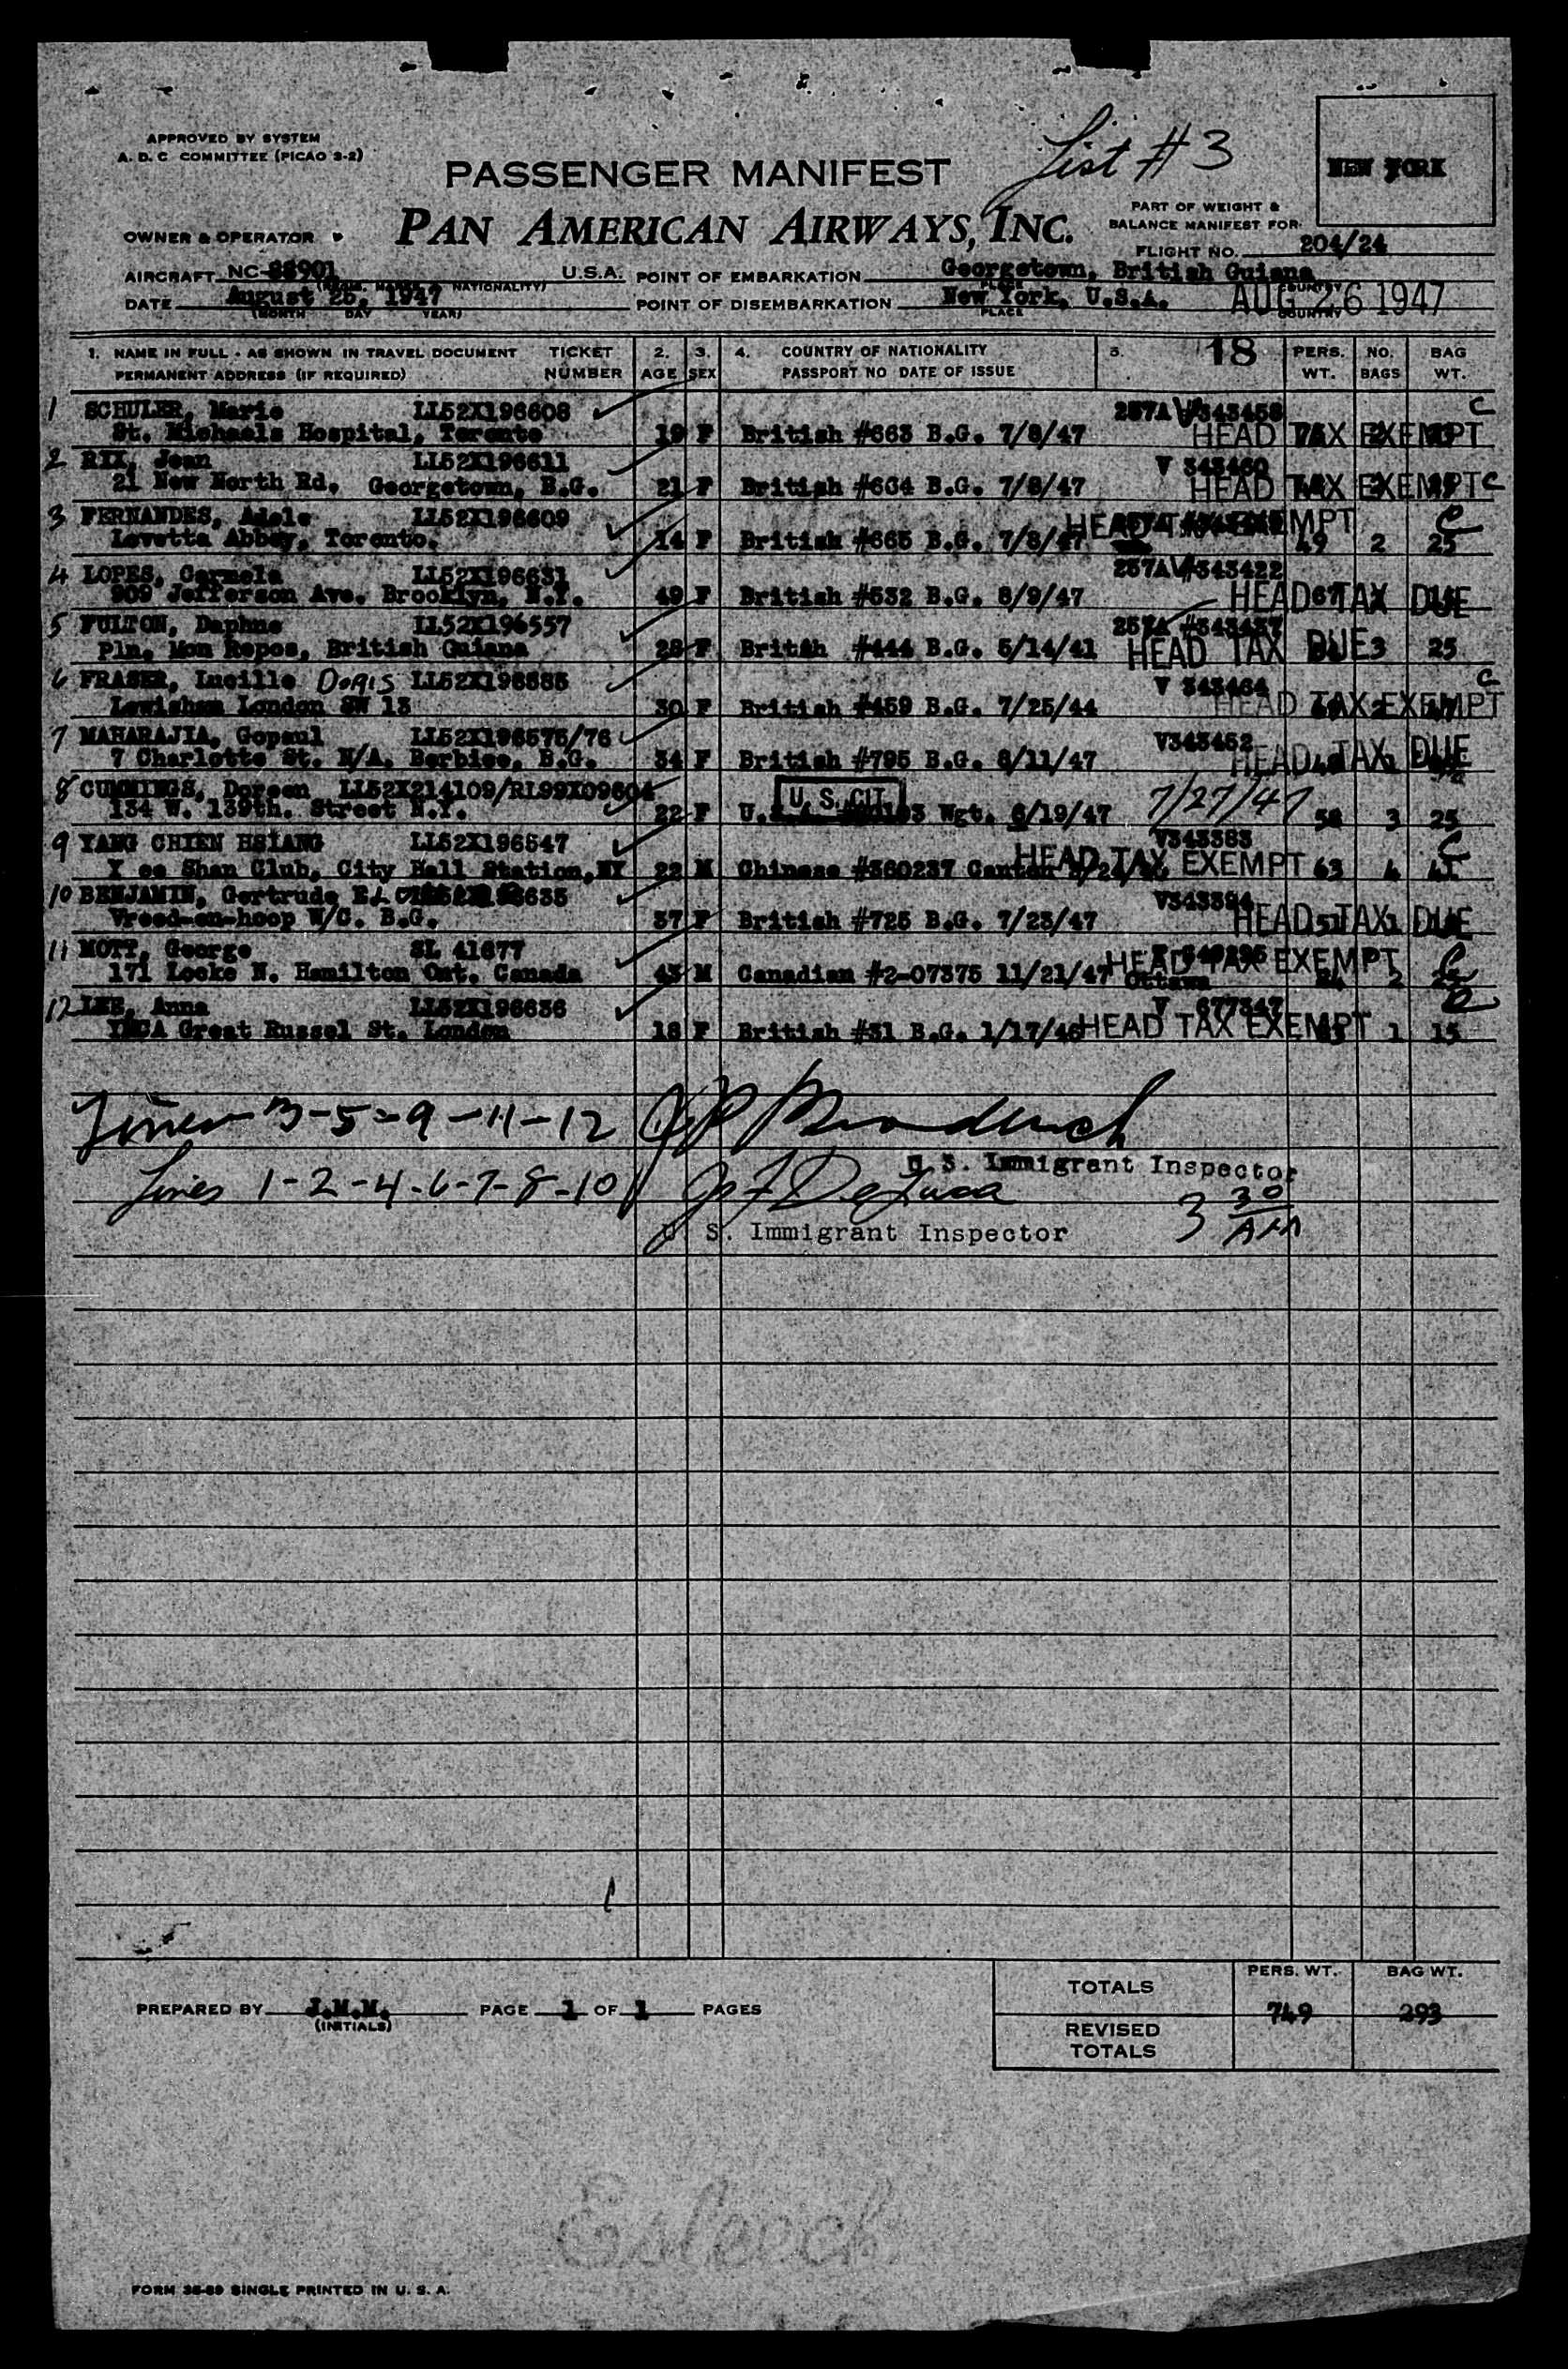 List #3
APPROVED BY SYSTEM
A. D. C. COMMITTEE (PICAO 3-2)
PASSENGER MANIFEST
NEW YORK
PART OF WEIGHT &
BALANCE MANIFEST FOR
OWNER & OPERATOR
PAN AMERICAN AIRWAYS, INC.
FLIGHT NO. 204/24
AIRCRAFT NC-88901 U.S.A. POINT OF EMBARKATION Georgetown, British Guiana
NATIONALITY) PLACE COUNTRY
DATE August 25, 1947 POINT OF DISEMBARKATION New York, U.S.A. AUG 26 1947
(MONTH DAY YEAR) PLACE COUNTRY
1. NAME IN FULL - AS SHOWN IN TRAVEL DOCUMENT TICKET 2. 3. 4. COUNTRY OF NATIONALITY 5. 18 PERS. NO. BAG
PERMANENT ADDRESS (IF REQUIRED) NUMBER AGE SEX PASSPORT NO DATE OF ISSUE WT. BAGS WT.
1 SCHULER, Marie LL52X196608 257A V#343458 C
St. Michaels Hospital, Toronto 19 F British #663 B.G. 7/8/47 HEAD TAX EXEMPT
2 RIX, Jean LL52X196611 V 343460
21 New North Rd. Georgetown, B.G. 21 F British #664 B.G. 7/8/47 HEAD TAX EXEMPT C
3 FERNANDES, Adele LL52X196609 HEAD TAX EXEMPT C
Loretta Abbey, Toronto. 14 F British #665 B.G. 7/8/47 49 2 25
4 LOPES, Carmela LL52X196631 257A V#343422
909 Jefferson Ave. Brooklyn, N.Y. 49 F British #532 B.G. 6/9/47 67 HEAD TAX DUE
5 FULTON, Daphne LL52X196557 257A #343437
Pln. Mon Repos, British Guiana 28 F Britsh #444 B.G. 5/14/41 HEAD TAX DUE 3 25
6 FRASER, Lucille Doris LL52X196585 V 343464 C
Lewisham London SW 13 30 F British #459 B.G. 7/25/44 HEAD TAX EXEMPT
7 MAHARAJIA, Gopaul LL52X196575/76 V343452
7 Charlotte St. N/A. Berbice, B.G. 34 F British #795 B.G. 8/11/47 HEAD TAX DUE
8 CUMMINGS, Doreen LL52X214109/RL99X09604 U. S. CIT. 7/27/47
134 W. 139th. Street N.Y. 22 F Wgt. 6/19/47 58 3 25
9 YANG CHIEN HSIANG LL52X196547 V343383 C
Shan Club, City Hall Station, NY 22 M Chinese #360237 Canton HEAD TAX EXEMPT 63 4
10 BENJAMIN, Gertrude V343394
Vreed-en-hoop W/C. B.G. 37 F British #725 B.G. 7/23/47 HEAD TAX DUE
11 MOTT, George SL 41677 HEAD TAX EXEMPT
171 Locke N. Hamilton Ont. Canada 43 M Canadian #2-07375 11/21/47 Ottawa 2
12 LEE, Anna LL52X196636 V 677347
YMCA Great Russel St. London 18 F British #31 B.G. 1/17/46 HEAD TAX EXEMPT 1 15
Lines 3-5-9-11-12
U S. Immigrant Inspector
Lines 1-2-4-6-7-8-10 Jos F DeLuca
3 30 AM
U S. Immigrant Inspector
TOTALS PERS. WT. BAG WT.
PREPARED BY J.M.M. PAGE 1 OF 1 PAGES 749 293
(INITIALS)
REVISED
TOTALS
FORM 36-89 SINGLE PRINTED IN U. S. A.